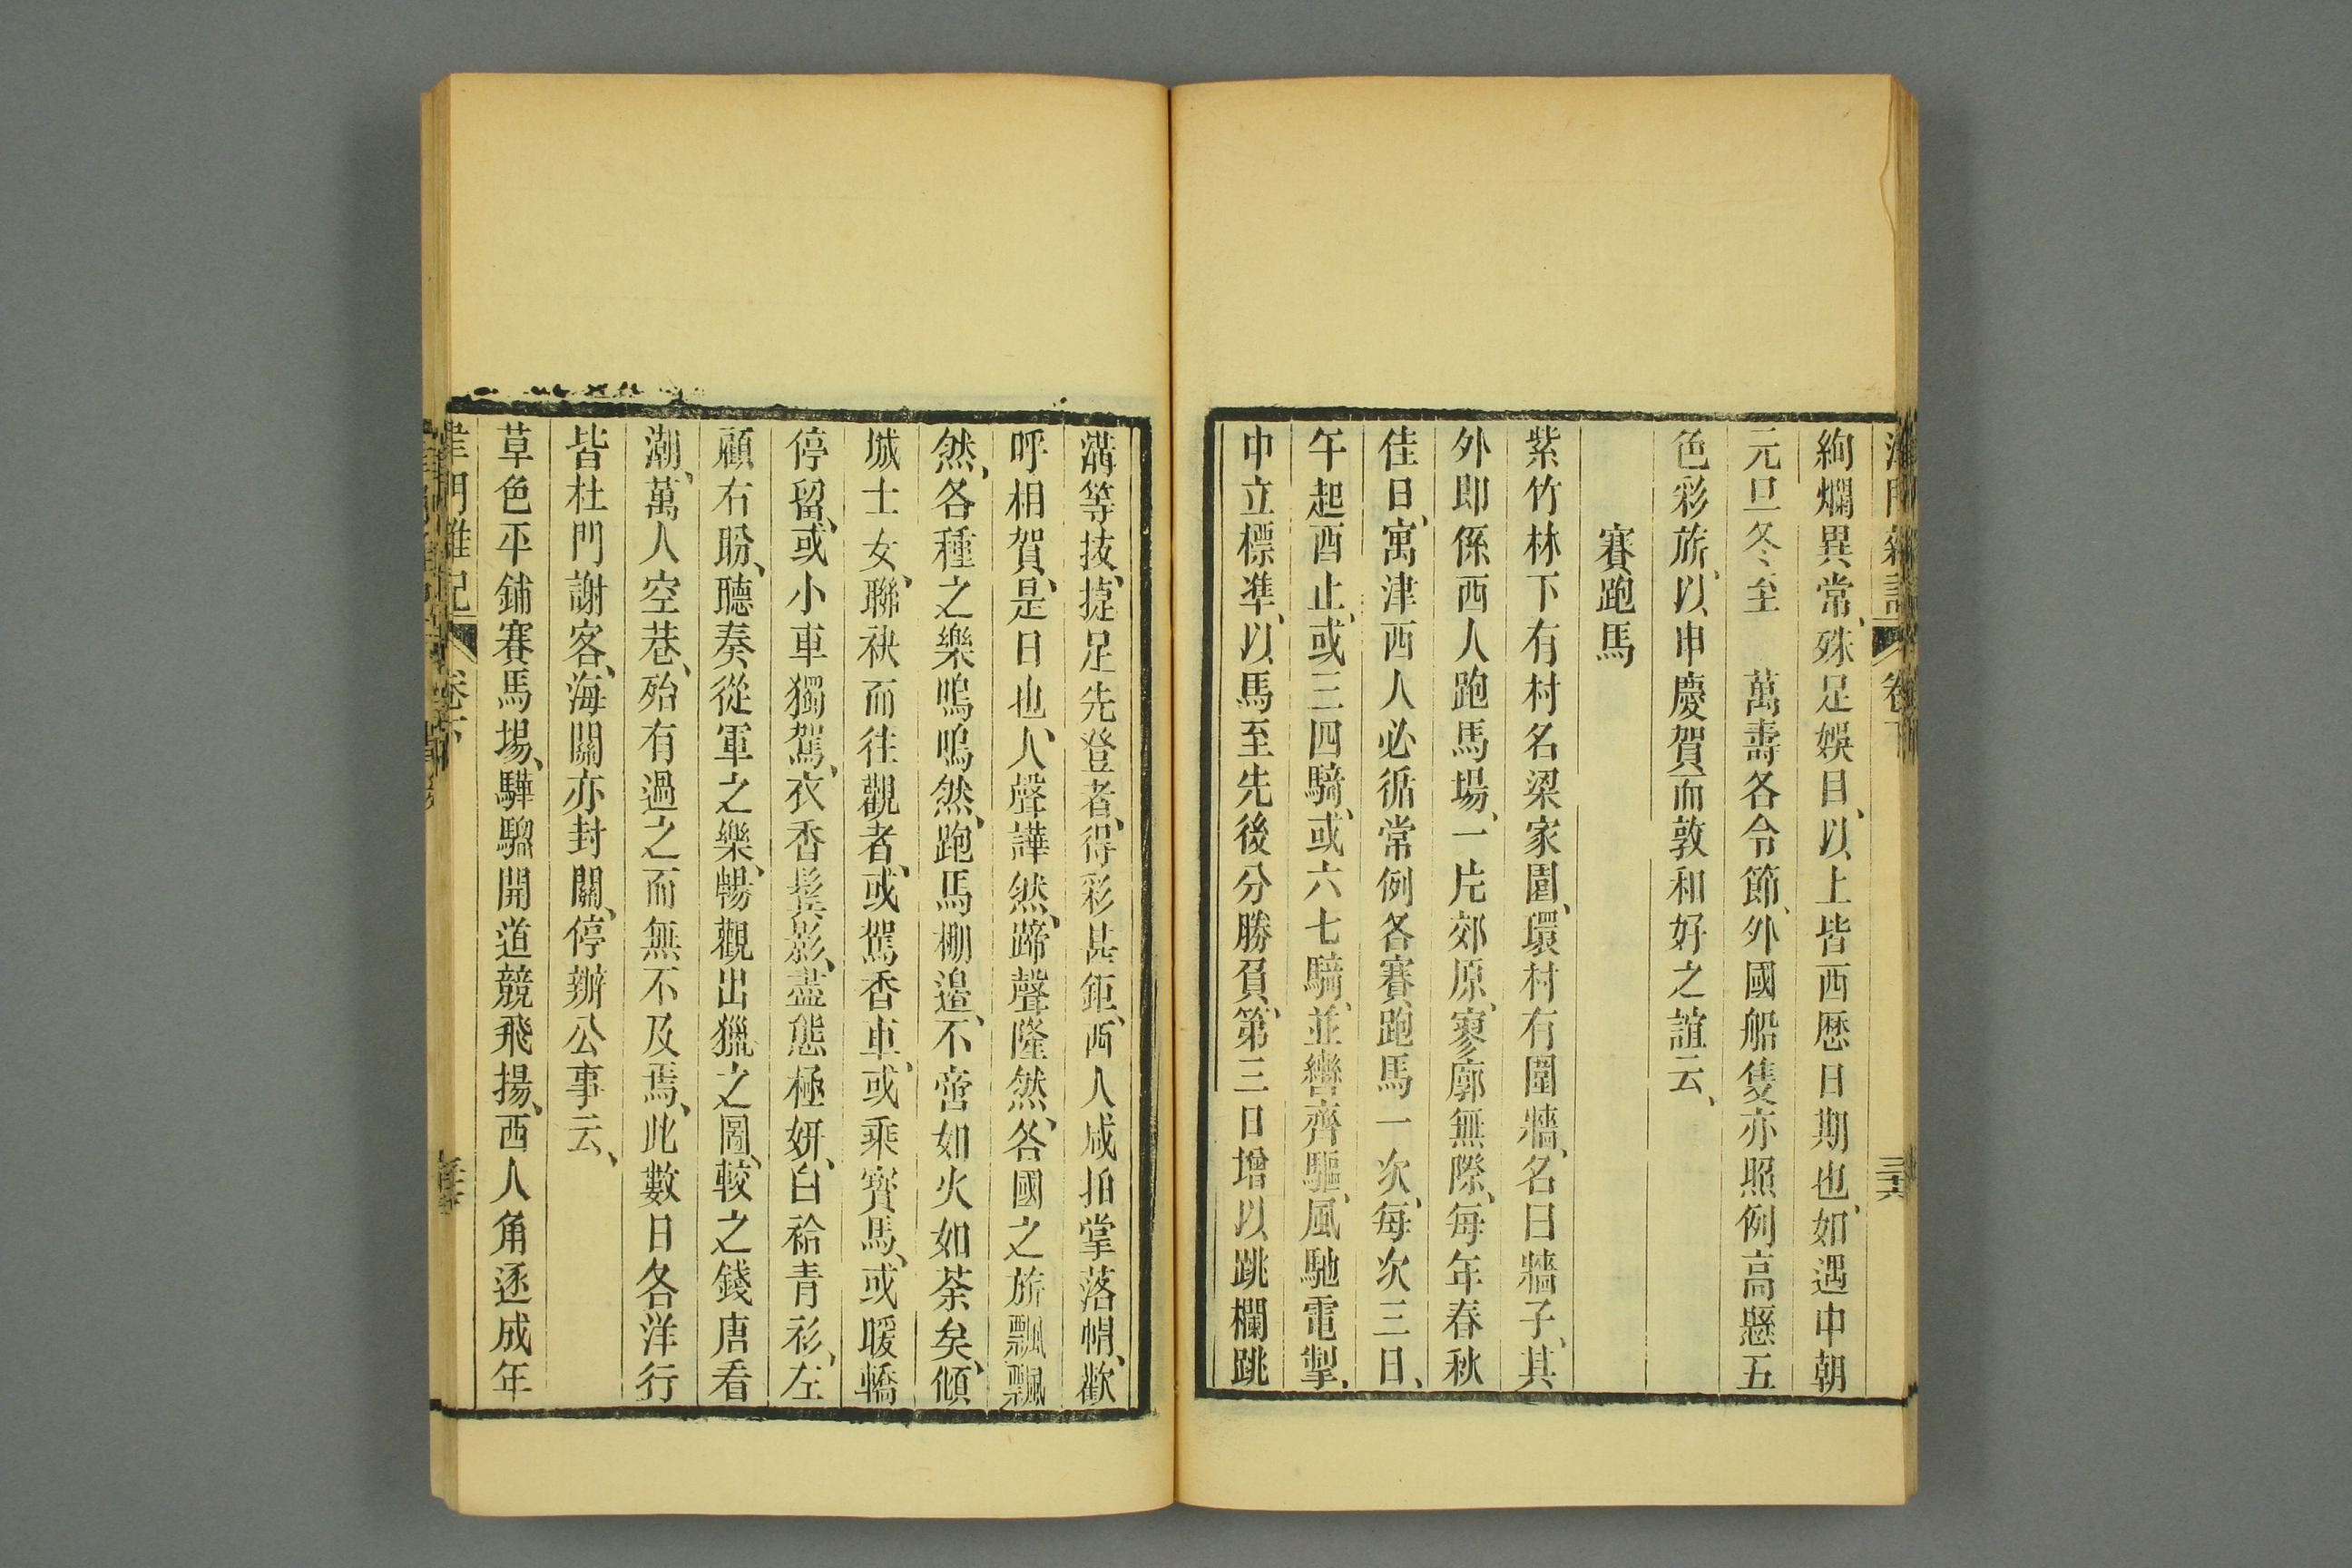 絢爛異常、殊足娛目、以上皆西歷日期也、如遇中朝
元旦冬至　萬壽各令節、外國船隻亦照例高懸五
色彩旂、以申慶賀而敦和好之誼云、
賽跑馬
紫竹林下有村名梁家園、環村有圍牆、名曰牆子、其
外即係西人跑馬場、一片郊原、寥廓無際、每年春秋
佳日、寓津西人必循常例各賽跑馬一次、每次三日、
午起酉止、或三四騎、或六七騎、並轡齊驅、風馳電掣、
中立標準、以馬至先後分勝負、第三日增以跳欄跳
溝等技、捷足先登者、得彩甚鉅、西人咸拍掌落帽、歡
呼相賀、是日也、人聲譁然、蹄聲隆然、各國之旂飄飄
然、各種之樂嗚嗚然、跑馬棚邉、不啻如火如荼矣、傾
城士女、聯袂而往觀者、或駕香車、或乘寳馬、或暖轎
停留、或小車獨駕、衣香鬂影、盡態極妍、白袷青衫、左
顧右盼、聽奏從軍之樂、暢觀出獵之圖、較之錢唐看
潮、萬人空巷、殆有過之而無不及焉、此數日各洋行
皆杜門謝客、海關亦封關、停辦公事云、
草色平鋪賽馬場、驊騮開道競飛揚、西人角逐成年
津門雜記 卷下